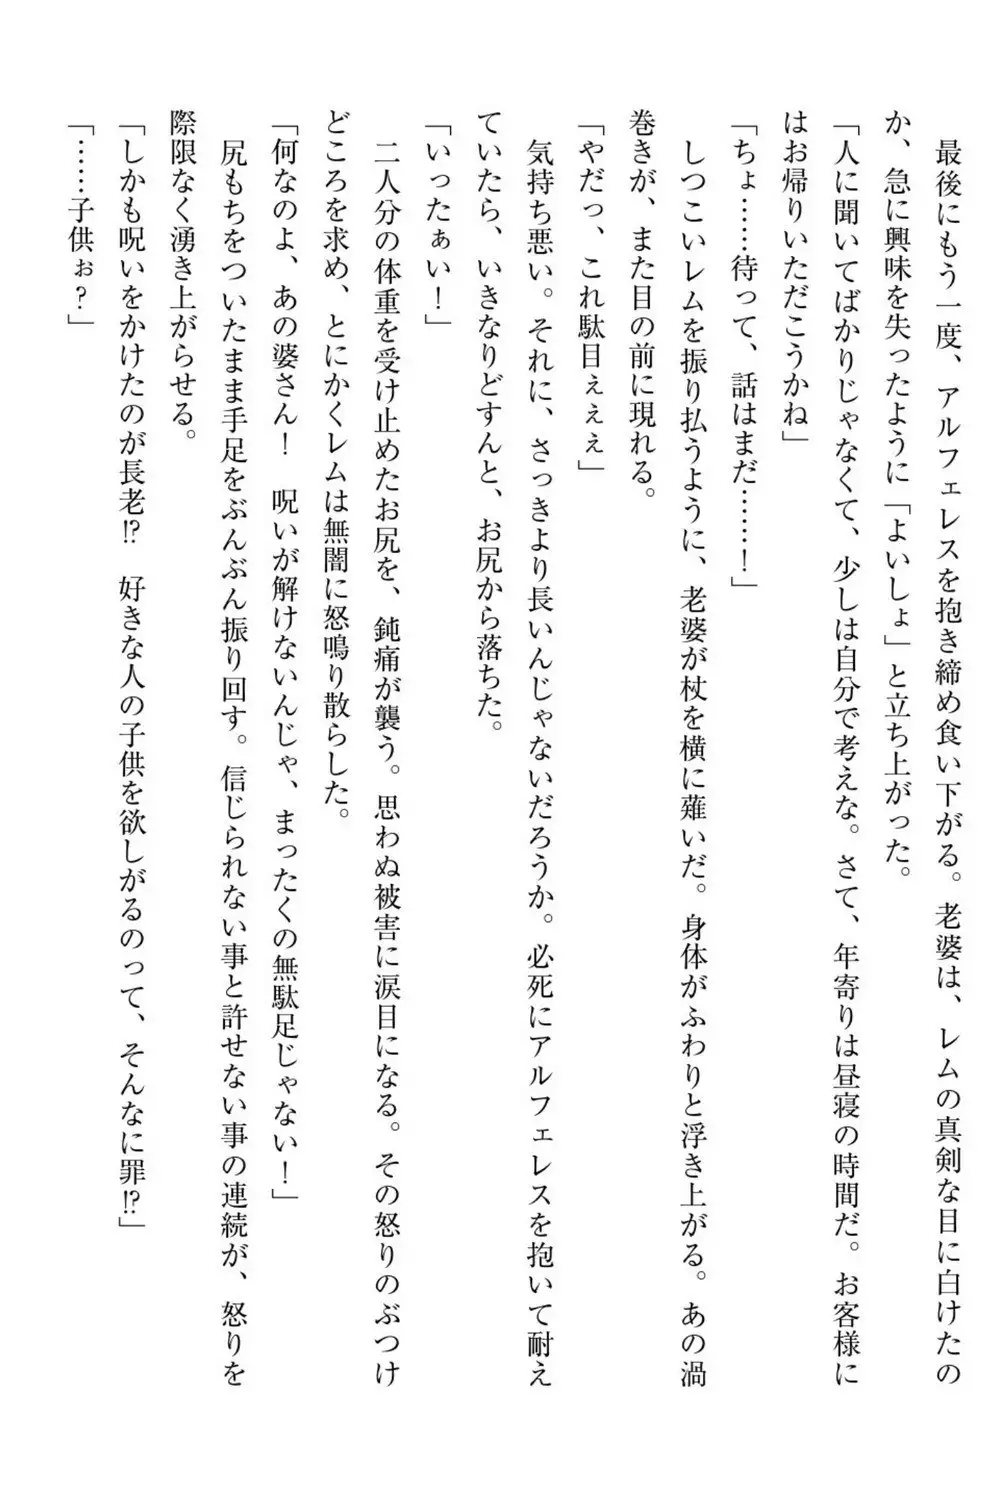 最後にもう一度、アルフェレスを抱き締め食い下がる。老婆は、レムの真剣な目に白けたの
か、急に興味を失ったように「よいしょ」と立ち上がった。
「人に聞いてばかりじゃなくて、少しは自分で考えな。さて、年寄りは昼寝の時間だ。お客様に
はお帰りいただこうかね」
「ちょ……待って、話はまだ……！」
　しつこいレムを振り払うように、老婆が杖を横に薙いだ。身体がふわりと浮き上がる。あの渦
巻きが、また目の前に現れる。
「やだっ、これ駄目ぇぇぇ」
　気持ち悪い。それに、さっきより長いんじゃないだろうか。必死にアルフェレスを抱いて耐え
ていたら、いきなりどすんと、お尻から落ちた。
「いったぁい！」
　二人分の体重を受け止めたお尻を、鈍痛が襲う。思わぬ被害に涙目になる。その怒りのぶつけ
どころを求め、とにかくレムは無闇に怒鳴り散らした。
「何なのよ、あの婆さん！　呪いが解けないんじゃ、まったくの無駄足じゃない！」
　尻もちをついたまま手足をぶんぶん振り回す。信じられない事と許せない事の連続が、怒りを
際限なく湧き上がらせる。
「しかも呪いをかけたのが長老⁉　好きな人の子供を欲しがるのって、そんなに罪⁉」
「……子供ぉ？」